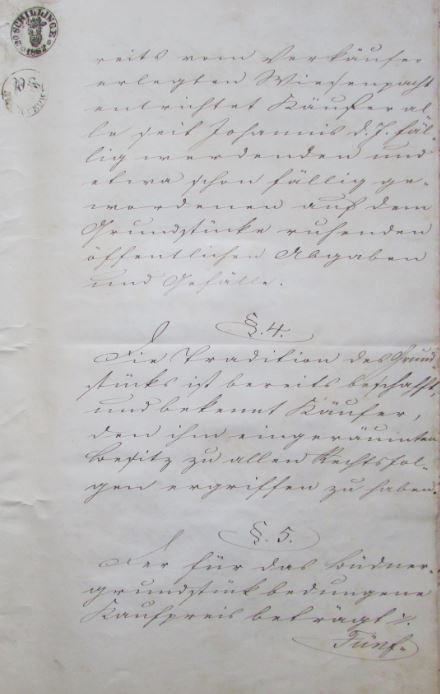 SCHILLINGE
reits vom Verkäufer
erlegten Wiesenpacht
entrichtet Käufer al-
le seit Johannis d. J. fäl-
lig werdenden und
etwa schon fällig ge-
wordenen auf dem
Grundstücke ruhenden
öffentlichen Abgaben
und Gefälle.
§. 4.
Die Tradition des Grund-
stücks ist bereits beschafft,
und bekennt Käufer,
den ihm eingeräumten
Besitz zu allen Rechtsfol-
gen ergriffen zu haben.
§. 5.
Der für das Büdner-
grundstück bedungene
Kaufpreis beträgt
Fünf-